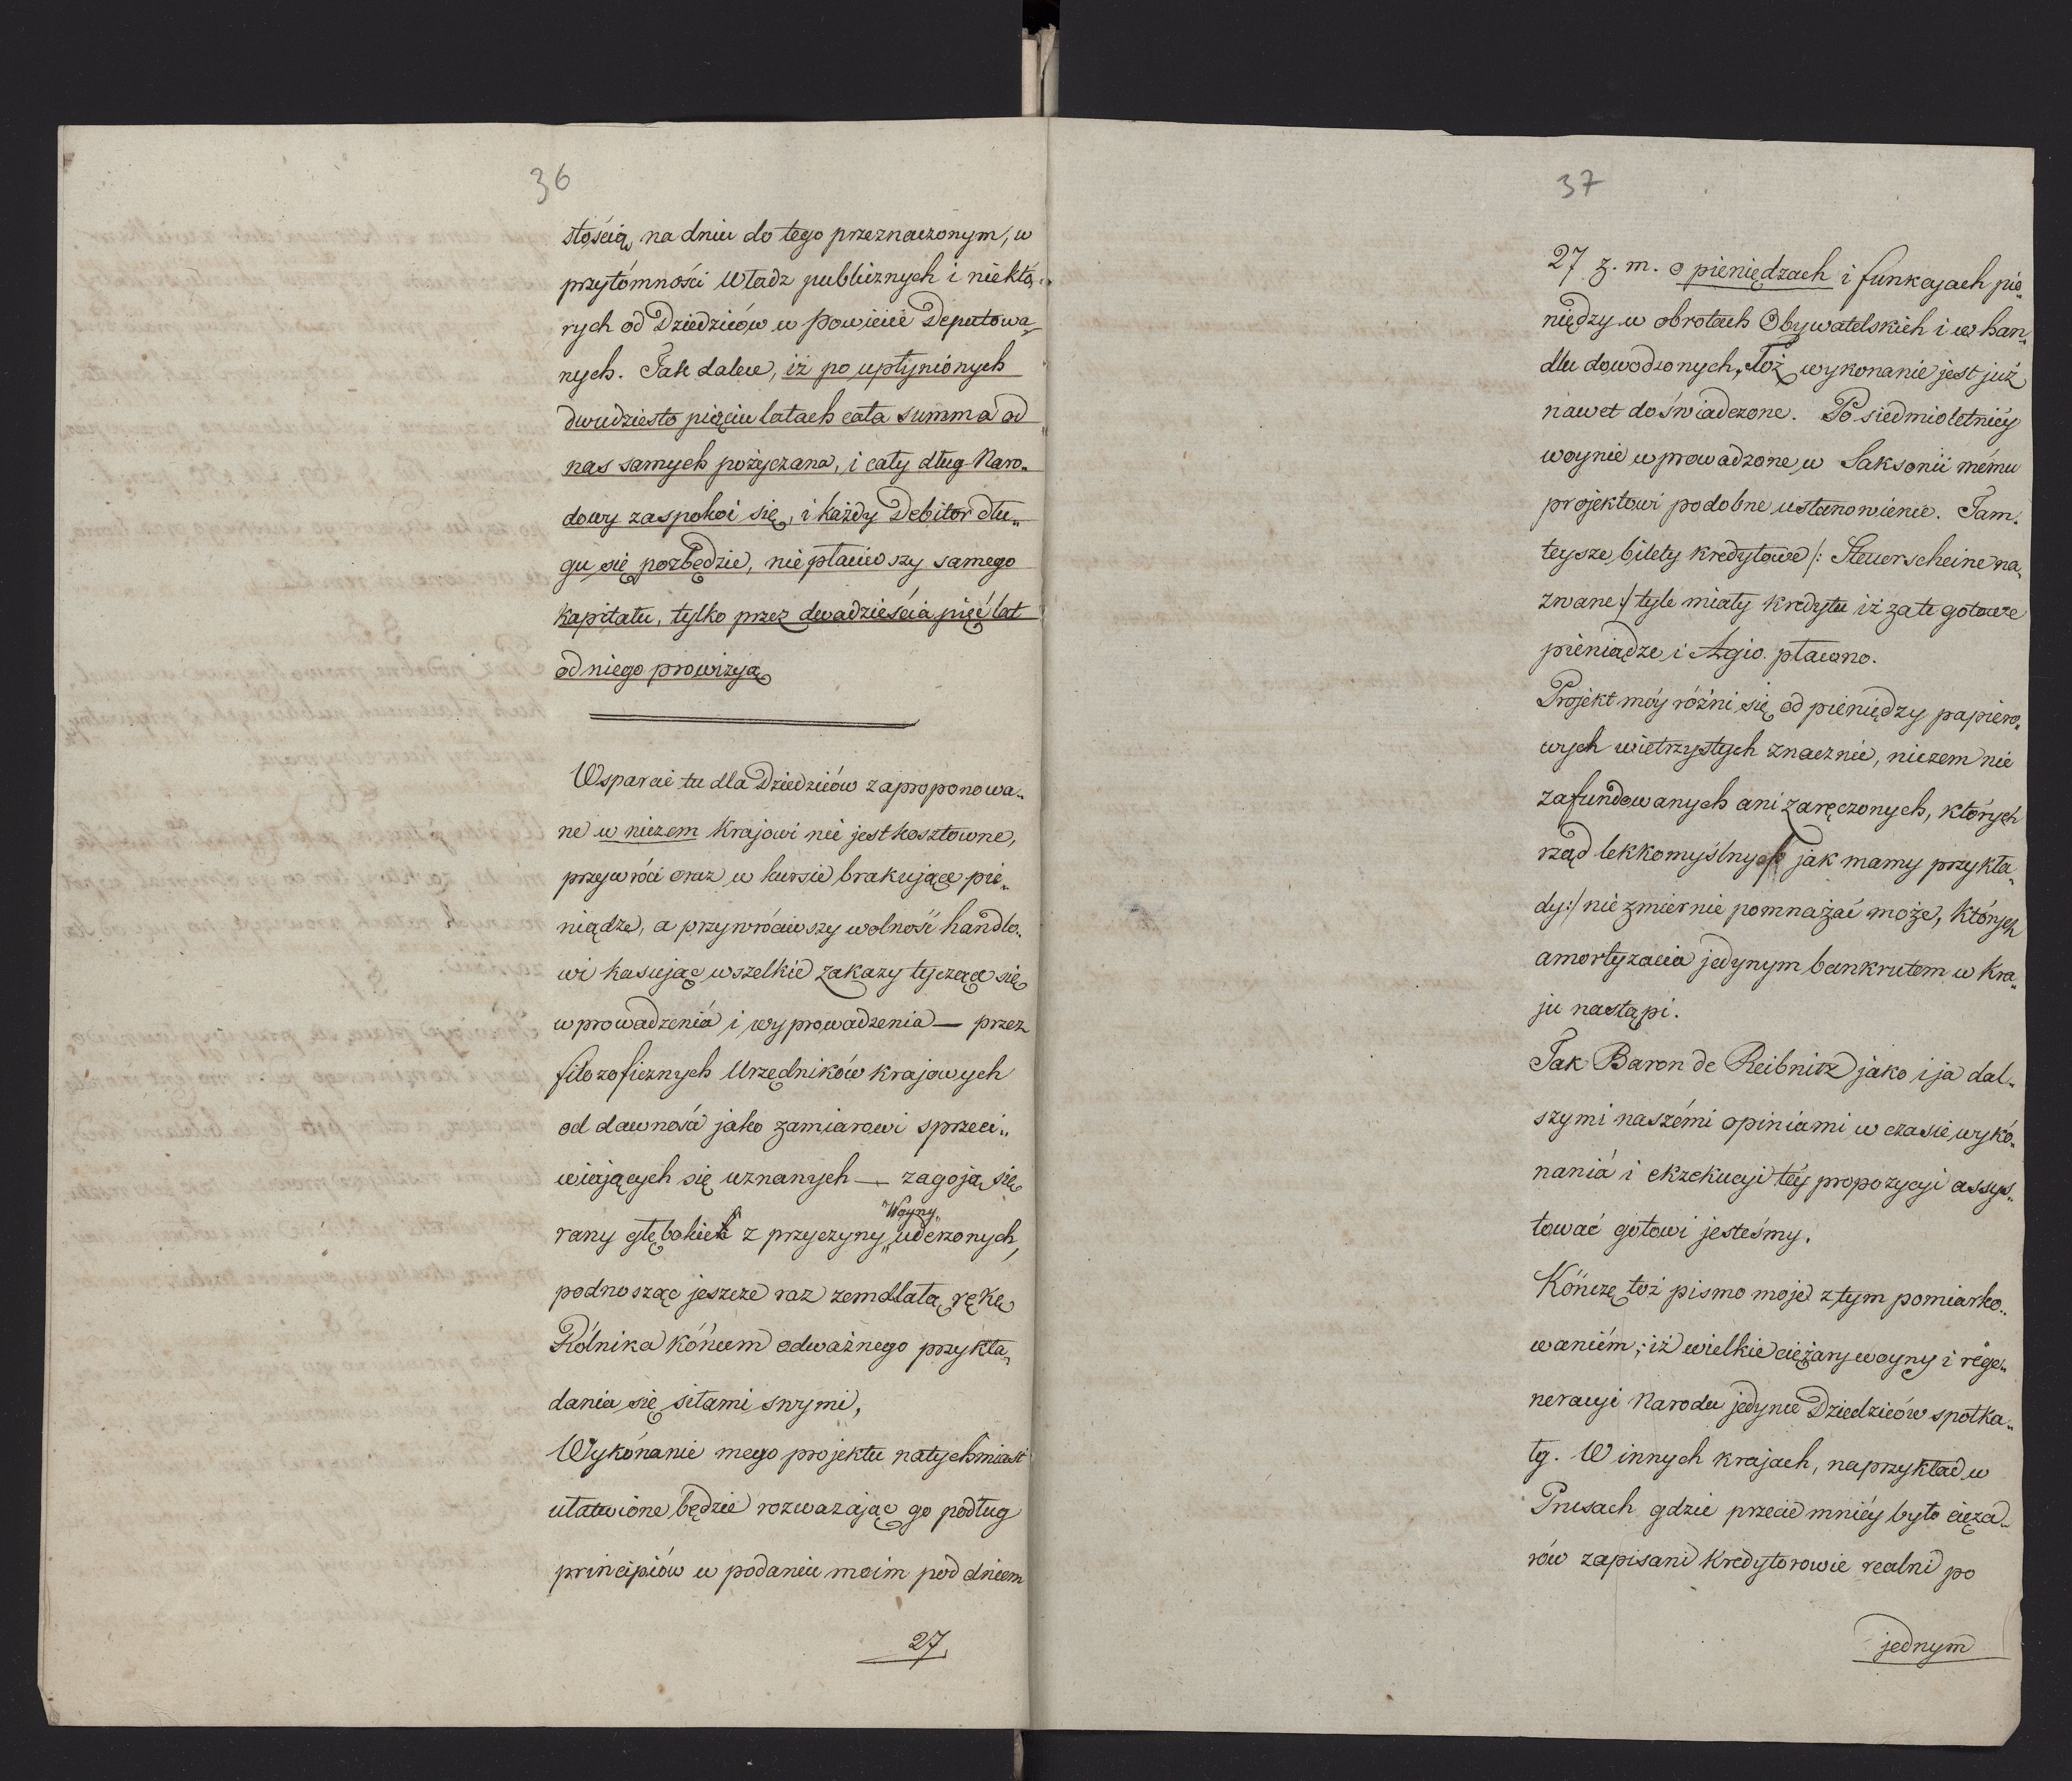 36
stością na dniu do tego przeznaczonym, w
przytómności Władz publicznych i niektó„
rych od Dziedziców w Powiecie Deputowa„
nych. Tak dalece, iż po upłyniónych
dwudziesto pięciu latach cała summa od
nas samych pożyczana, i cały dług Naro„
dowy zaspokoi się, i każdy Debitor dłu„
gu się pozbędzie, nie płaciwszy samego
kapitału, tylko przez dwadzieścia pięć lat
od niego prowizyą
Wsparcie tu dla Dziedziców zaproponowa„
ne w niczem Krajowi nie jest kosztowne,
przywróci oraz w kursie brakujące pie„
niądze, a przywróciwszy wolność handlo„
wi kasując wszelkie zakazy tyczące się
wprowadzenia i wyprowadzenia — przez
filozoficznych Urzędników krajowych
od dawności jako zamiarowi sprzeci„
wiających się uznanych — zagoją się
rany głębokie z przyczyny „Woyny„ uderzonych,
podnosząc jeszcze raz zemdlałą rękę
Rólnika kóńcem odważnego przykła„
dania się siłami swymi,
Wykónanie mego projektu natychmiast
ułatwione będzie rozważając go podług
principiów w podaniu moim pod dniem
27
37
27 z. m. o pieniędzach i funkcyach pie„
niędzy w obrotach Obywatelskich i w han„
dlu dowodzonych, Toż wykonanie jest już
nawet doświadczone. Po siedmioletniéy
woynie wprowadzone w Saksonii mému
projektowi podobne ustanowienie. Tam„
teysze bilety kredytowe /: Steuerscheine na„
zwane :/ tyle miały kredytu iż za te gotowe
pieniądze i Agio płacono.
Projekt móy różni się od pieniędzy papiero„
wych wietrzystych znacznie, niczem nie
zafundowanych ani zaręczonych, których
rząd lekkomyślny /: jak mamy przykła„
dy :/ niezmiernie pomnażać może, których
amortyzacia jedynym bankrutem w Kra„
ju nastąpi.
Tak Baron de Reibnitz jako i ja dal„
szymi naszémi opiniami w czasie wykó„
nania i ekzekucyi téy propozycyi assys„
tować gotowi jesteśmy.
Kóńczę toż pismo moje z tym pomiarko„
waniém; iż wielkie ciężary woyny i rege„
neracyi Narodu jedynie Dziedziców spotka„
ły. W innych krajach, naprzykład w
Prusach gdzie przecie mniéy było cięża„
rów zapisani Kredytorowie realni po
jednym